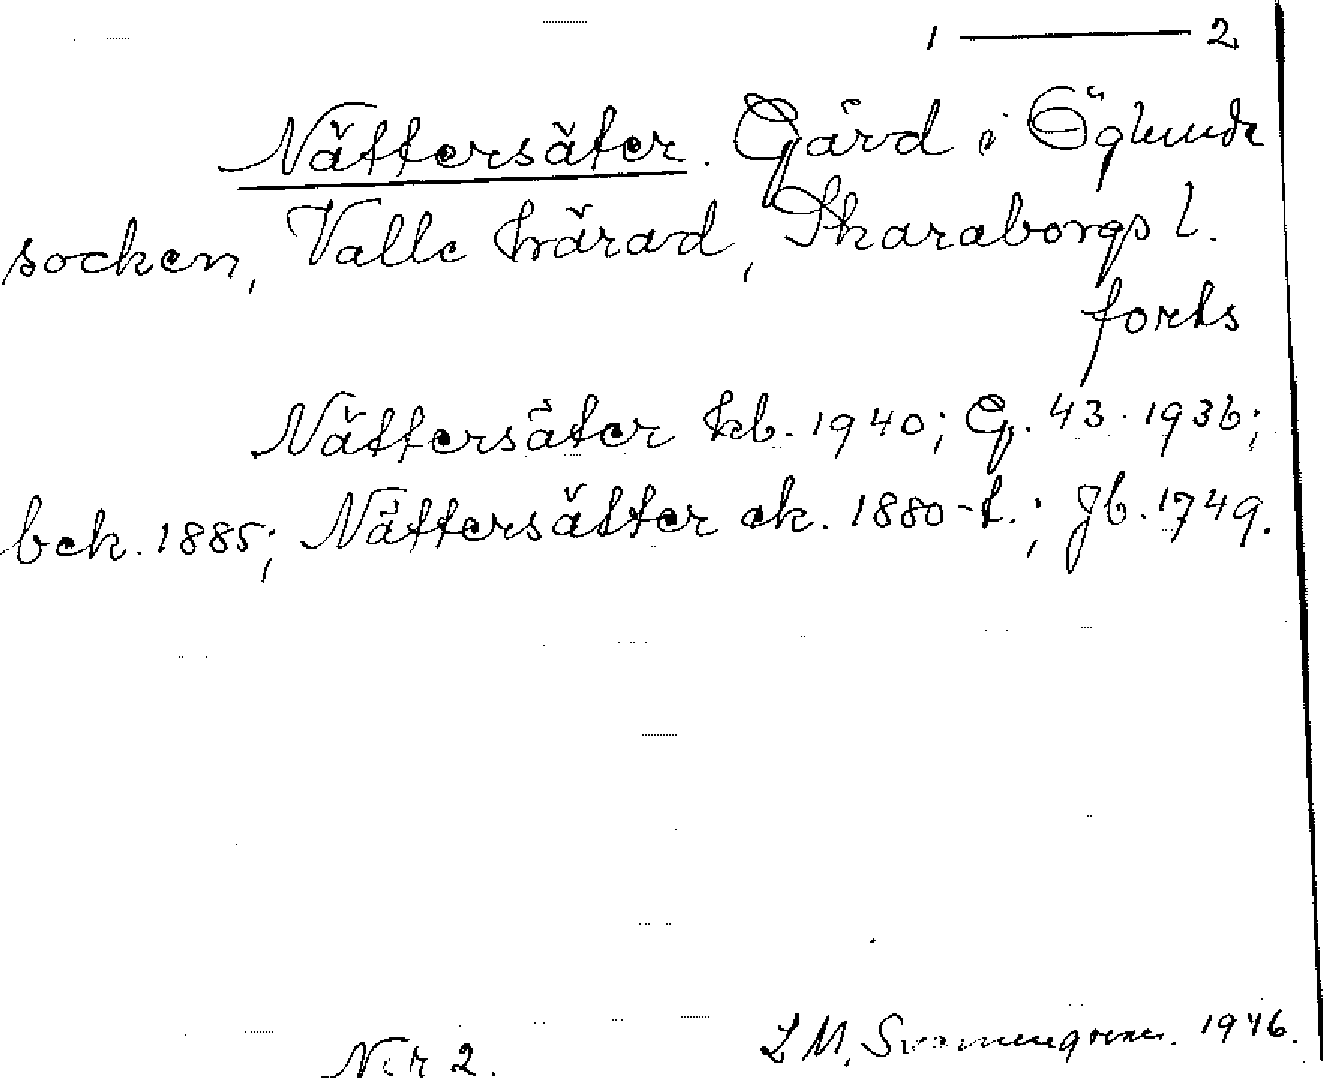 1 — 2
Nättersäter. Gård i Öglunda
socken, Valle härad, Skaraborgs l.
forts
Nättersäter kb. 1940; G. 43. 1936;
bek. 1885; Nättersätter ak. 1880-t.; Jb. 1749.
N:r 2. I. M. Svennungsson. 1946.